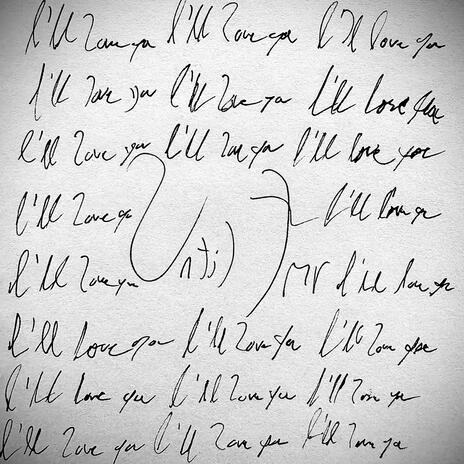 I'll love you I'll love you I'll love you
I'll love you I'll love you I'll love you
I'll love you I'll love you I'll love you
I'll love you I'll love you
Until I
I'll love you I'll love you
I'll love you I'll love you I'll love you
I'll love you I'll love you I'll love you
I'll love you I'll love you I'll love you